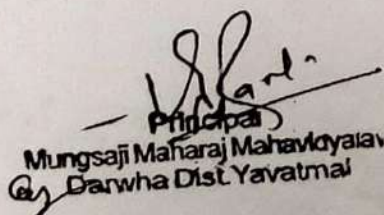 Principal
Mungsaji Maharaj Mahavidyalay
Darwha Dist. Yavatmal